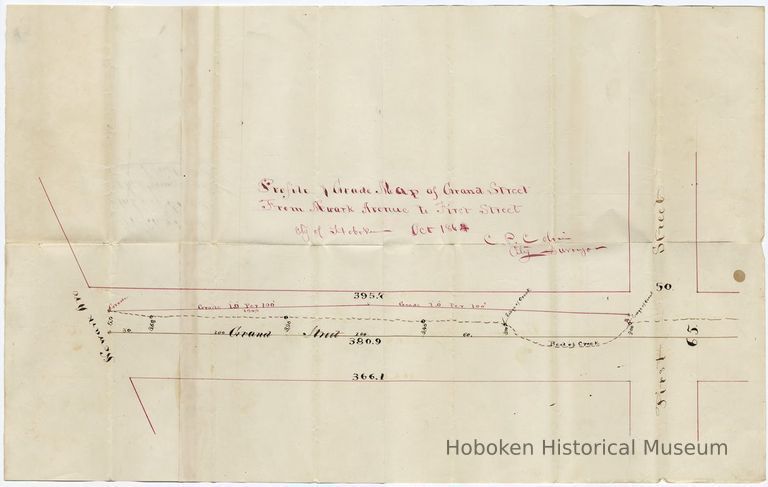 Profile & Grade Map of Grand Street
From Nwark Avenue to First Street
City of Hoboken Oct 1864
City Surveyor
395.7
Grade 1.0 Per 100'
Grade 1.0 Per 100'
Grand Street
100
100
60
380.9
Bed of Creek
366.1
Newark Ave
First Street
50
65
Hoboken Historical Museum